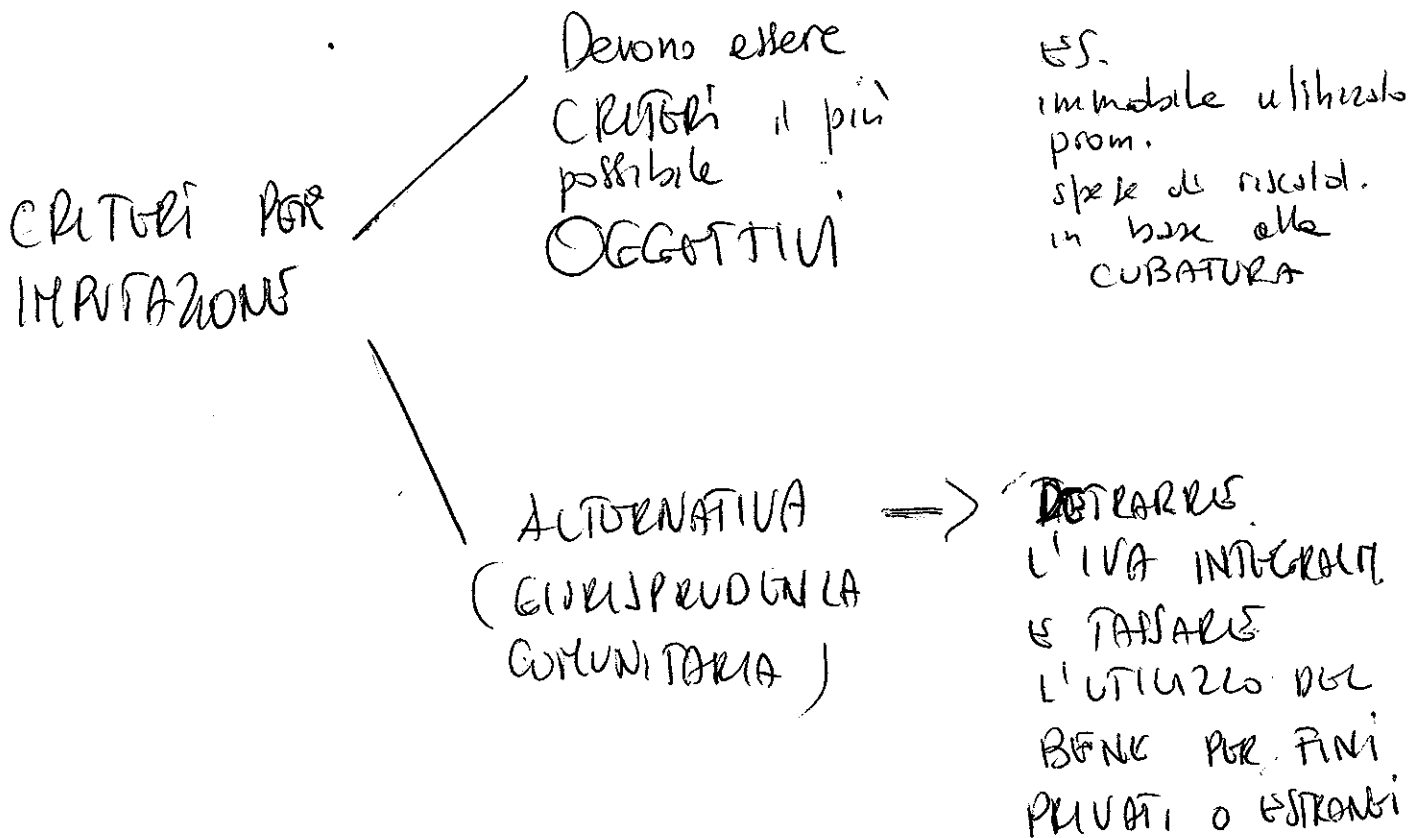 CRITERI PER
IMPUTAZIONE
Devono essere
CRITERI il più
possibile
OGGETTIVI
ES.
immobile utilizzato
prom.
spese di riscald.
in base alla
CUBATURA
ALTERNATIVA
(GIURISPRUDENZA
COMUNITARIA)
=>
DETRARRE
L'IVA INTEGRALM.
E TASSARE
L'UTILIZZO DEL
BENE PER FINI
PRIVATI O ESTRANEI